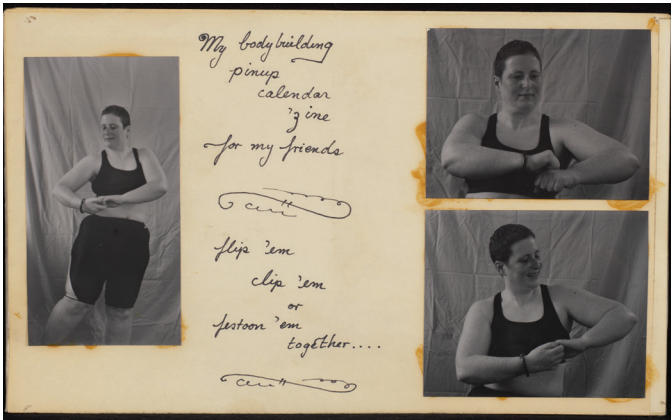 My bodybuilding
pinup
calendar
'zine
for my friends
flip 'em
clip 'em
or
festoon 'em
together....